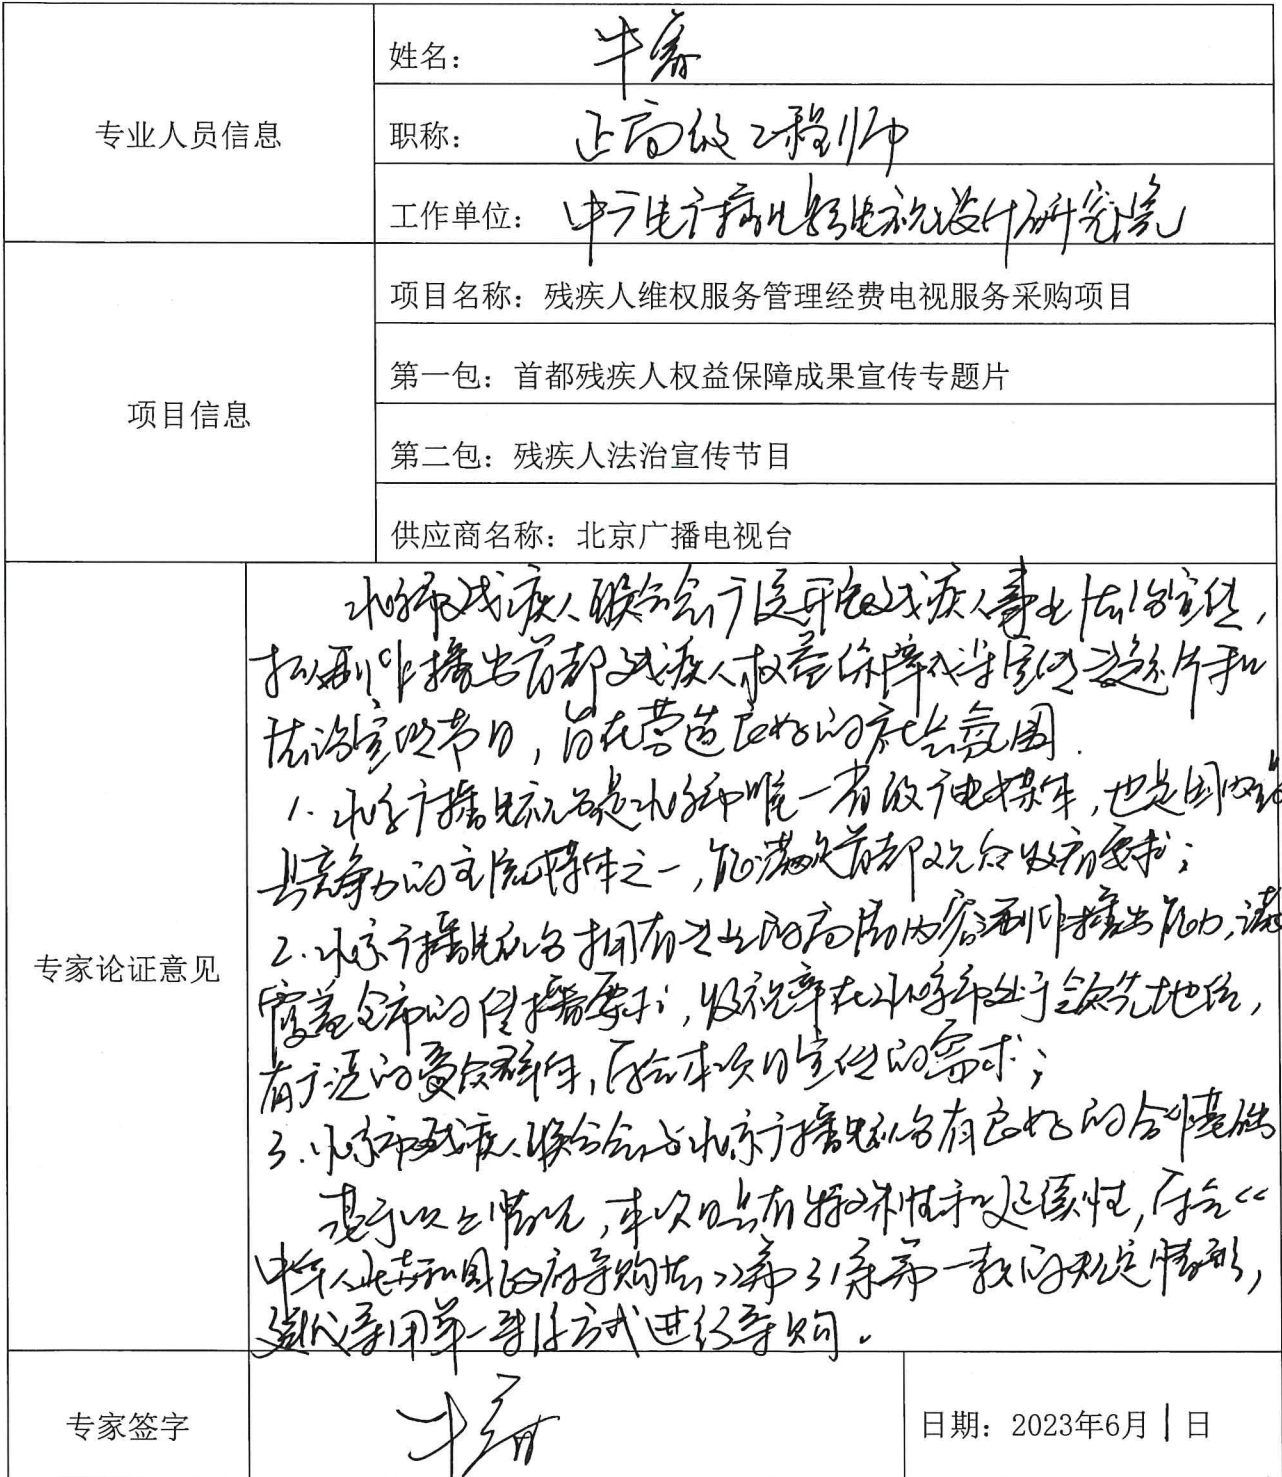 专业人员信息
姓名：牛睿
职称：正高级工程师
工作单位：中广电广播电影电视设计研究院
项目信息
项目名称：残疾人维权服务管理经费电视服务采购项目
第一包：首都残疾人权益保障成果宣传专题片
第二包：残疾人法治宣传节目
供应商名称：北京广播电视台
专家论证意见
北京市残疾人联合会广泛开展残疾人事业法治宣传，
拟制作播出首都残疾人权益保障成果宣传专题片和
法治宣传节目，旨在营造良好的社会氛围.
1.北京广播电视台是北京市唯一省级广电媒体，也是国内
具竞争力的主流媒体之一，能满足首都观众收看要求；
2.北京广播电视台拥有专业的高质内容制作播出能力，满
覆盖全市的传播要求；收视率在北京市处于领先地位，
有广泛的受众群体，符合本项目宣传的需求；
3.北京市残疾人联合会与北京广播电视台有良好的合作基础
基于以上情况，本项目具有特殊性和延续性，符合《
中华人民共和国政府采购法》第31条第一款的规定情形，
建议采用单一来源方式进行采购。
专家签字
牛睿
日期：2023年6月1日